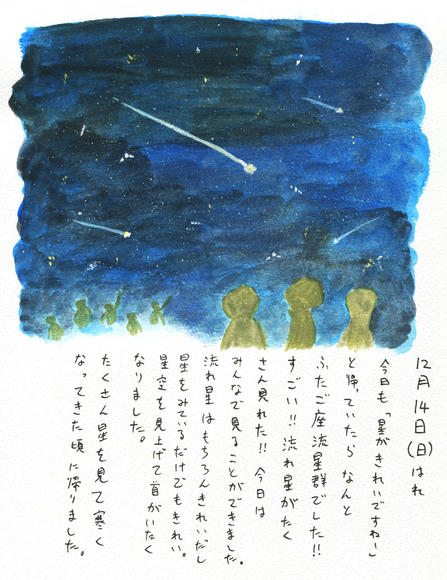 12月14日(日)はれ
今日も「星がきれいですねー」
と帰っていたら なんと
ふたご座流星群でした!!
すごい!! 流れ星がたく
さん見れた!! 今日は
みんなで見ることができました。
流れ星はもちろんきれいだし
星をみているだけでもきれい。
星空を見上げて首がいたく
なりました。
たくさん星を見て寒く
なってきた頃に帰りました。